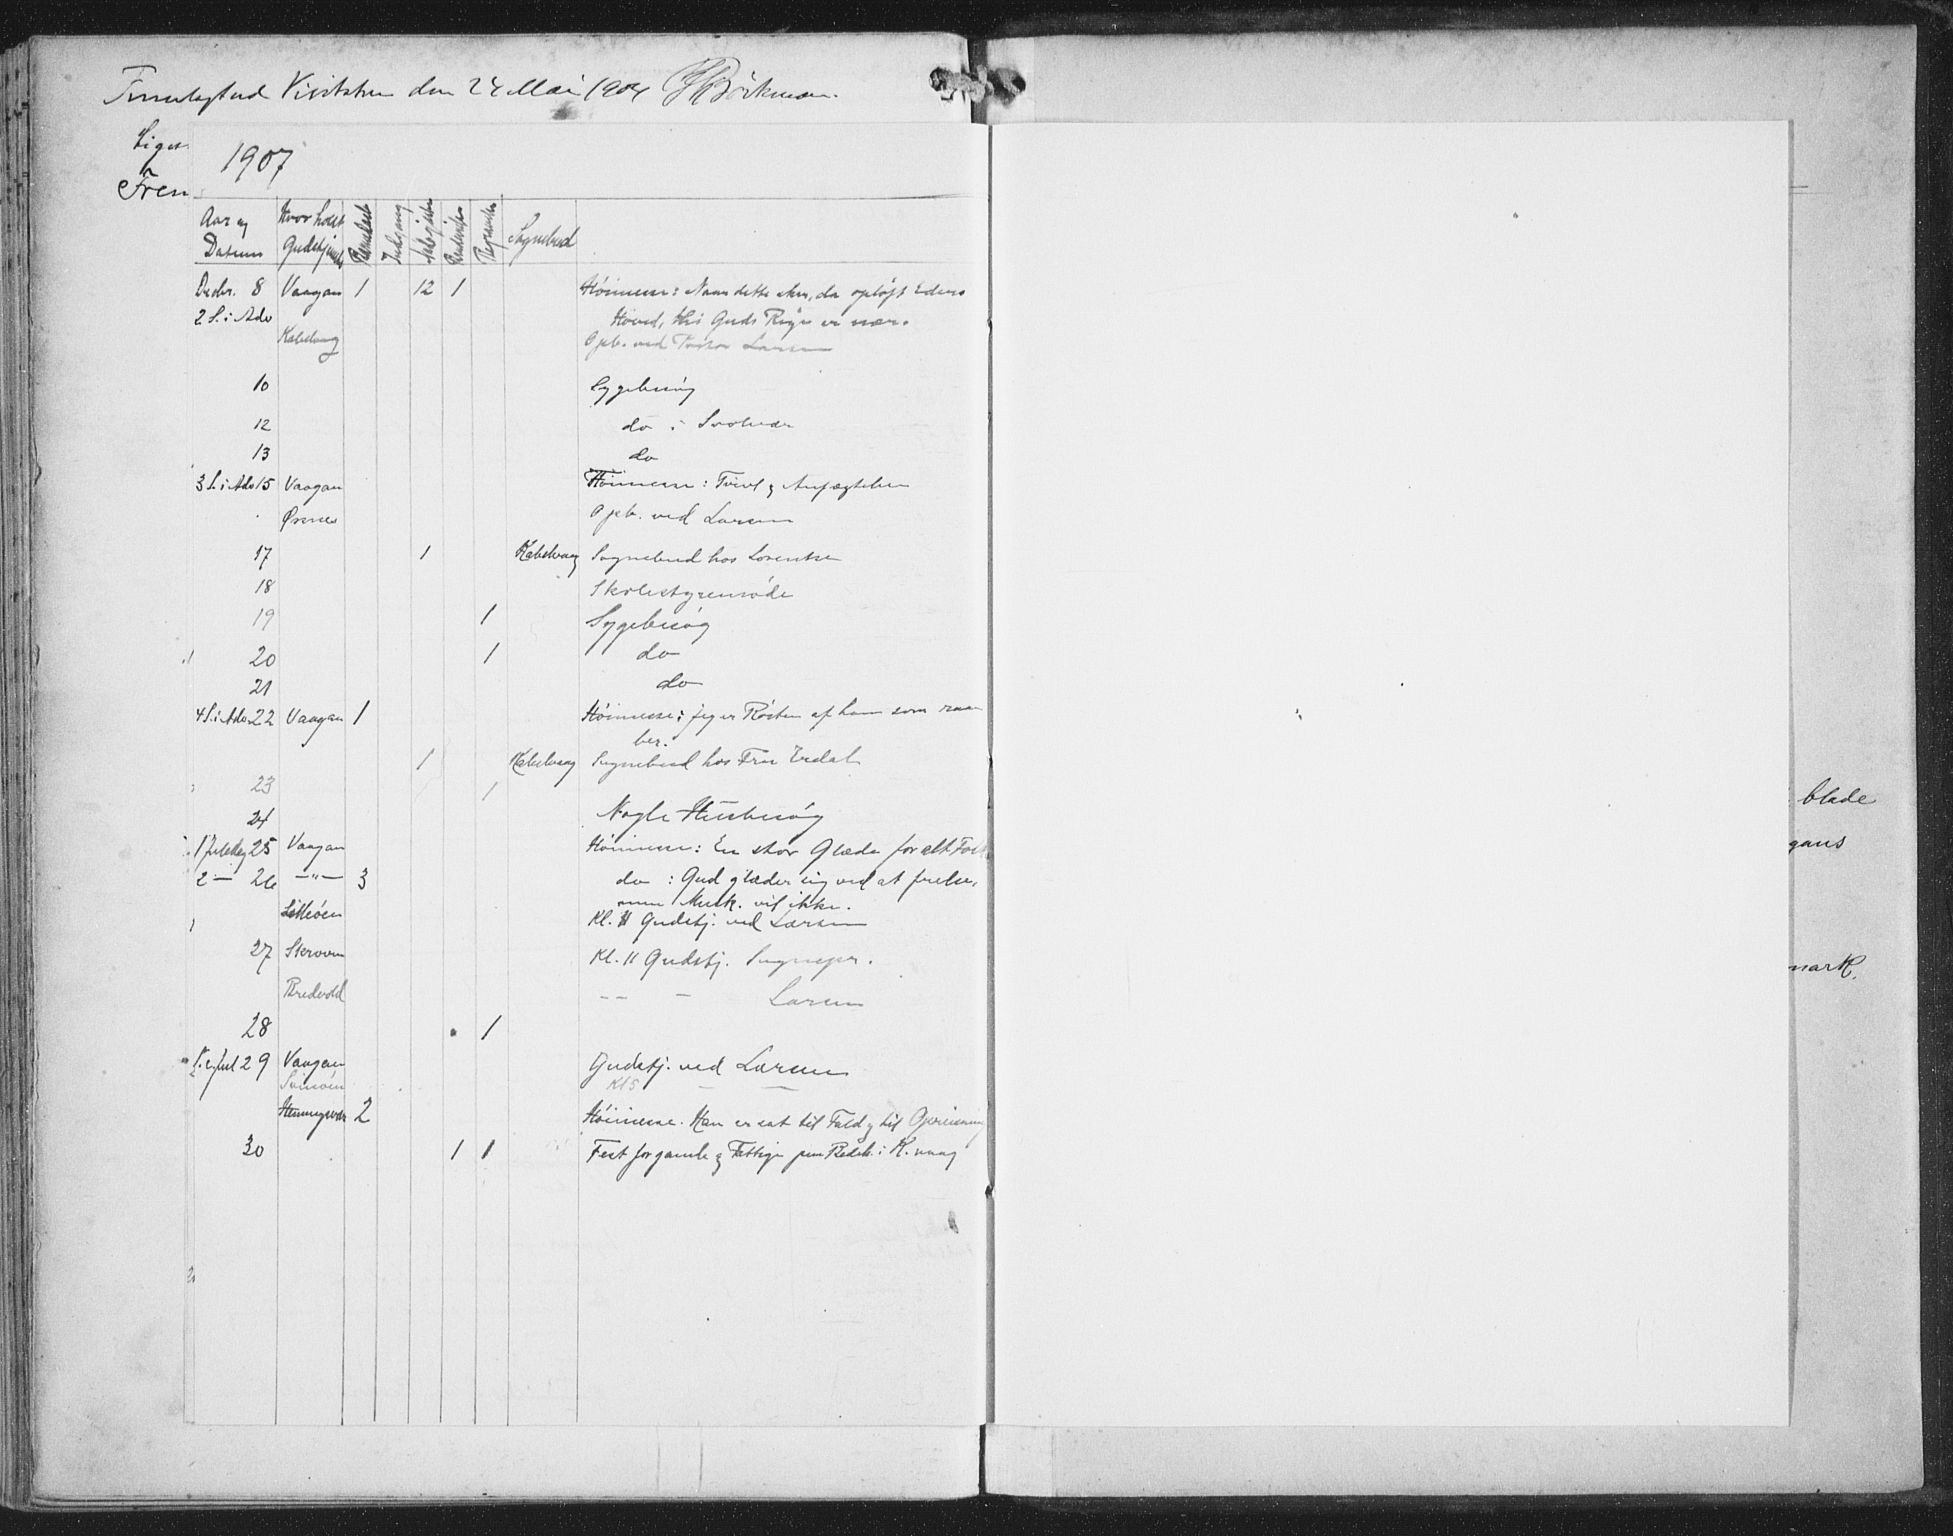 Fremlagt ved Visitatsen den 24 Mai 1904 Bøckman.
Liges
Frem
1907
Aar og Datum Hvor holdt Gudstjeneste Indgang Begravelse Sognebud
Decbr. 8 Vaagan 1 12 1 Høimesse: Naar dette sker, da opløft Eders
2 S. i Adv Hoved, thi Guds Rige er nær.
Kabelvaag Opb. ved Pastor Larsen
10 Sygebesøg
12 do i Svolvær
13 do
3 S. i Adv 15 Vaagan Høimesse: Tvivl og Anfægtelse
Ørsnes Opb. ved Larsen
17 1 Kabelvaag Sognebud hos Lorentsen
18 Skolestyremøde
19 1 Sygebesøg
20 1 do
21 do
4 S. i Adv 22 Vaagan 1 Høimesse: Jeg er Røsten af ham som raa-
ber.
1 Kabelvaag Sognebud hos Fru Erdal
23 1
24 Nogle Husbesøg
1 Juledag 25 Vaagan Høimesse: En stor Glæde for alt Folk
2 — 26 —"— 3 do : Gud glæder sig ved at frelse,
men Mnsk. vil ikke.
Kl. 11 Gudstj. ved Larsen
27 Skroven Kl. 11 Gudstj. Sognepr.
Bredvold -- - Larsen
28 1
S. e. Jul 29 Vaagan Gudstj. ved Larsen
Svinøen Kl 5 — —
Henningsvær 2 Høimesse. Han er sat til Fald og til Opreisning
30 1 1 Fest for gamle og Fattige paa Bedeh. i K. vaag
blade
gans
mark.